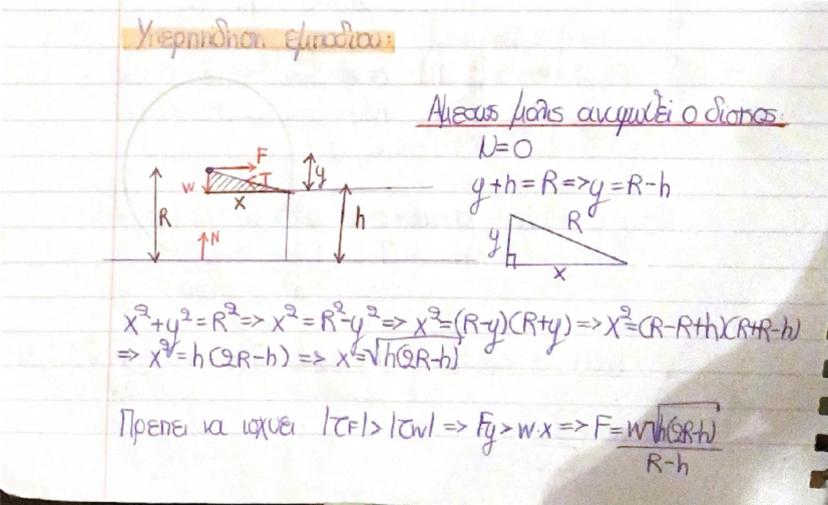 Υπερπήδηση εμποδίου:
Αμεσως μολις ανυψωθεί ο δίσκος:
N=0
y+h=R=>y=R-h
F
T
W
x
y
R
h
N
y
R
x
x²+y²=R²=>x²=R²-y²=>x²=(R-y)(R+y)=>x²=(R-R+h)(R+R-h)
=>x²=h(2R-h)=>x=√h(2R-h)
Πρεπει να ισχυει |τF|>|τw|=>Fy>w·x=>F=w√h(2R-h)
R-h